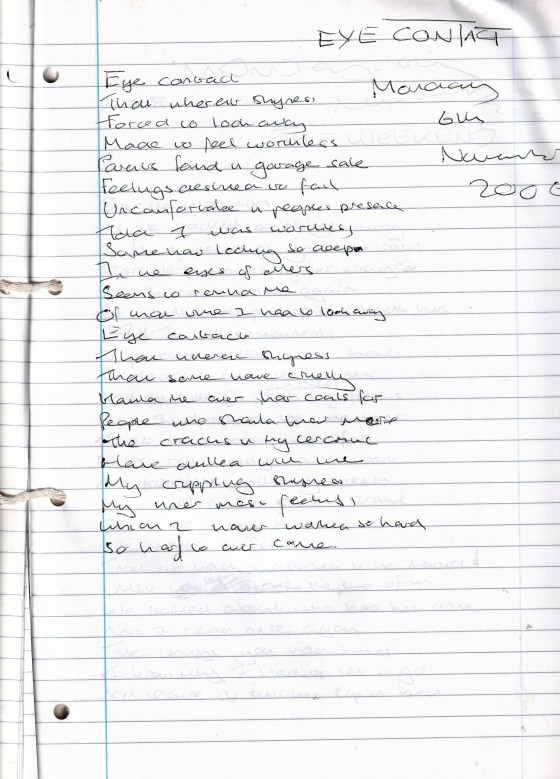 EYE CONTACT
Eye contact
That inherent shyness
Monday
Forced to look away
6th
Made to feel worthless
Parents found in garage sale
November
Feelings destined to fail
2006
Uncomfortable in peoples presence
Told I was worthless
Somehow looking so deep
In the eyes of others
Seems to remind me
Of that time I had to look away
Eye contact
That inherent shyness
That some have cruelly
Hauled me over hot coals for
People who should know more
The cracks in my ceramic
Have dulled with time
My crippling shyness
My inner most feelings
Which I have worked so hard
So hard to over come